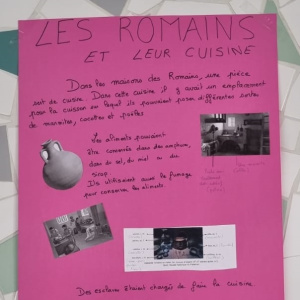 LES ROMAINS
ET LEUR CUISINE
Dans les maisons des Romains, une pièce
sert de cuisine. Dans cette cuisine il y avait un emplacement
pour la cuisson sur lequel ils pouvaient poser différentes sortes
de marmites, cocottes et poêles
Les aliments pouvaient
être conservés dans des amphores,
dans du sel, du miel ou du
sirop.
Ils utilisaient aussi le fumage
pour conserver les aliments.
Des esclaves étaient chargés de faire la cuisine.